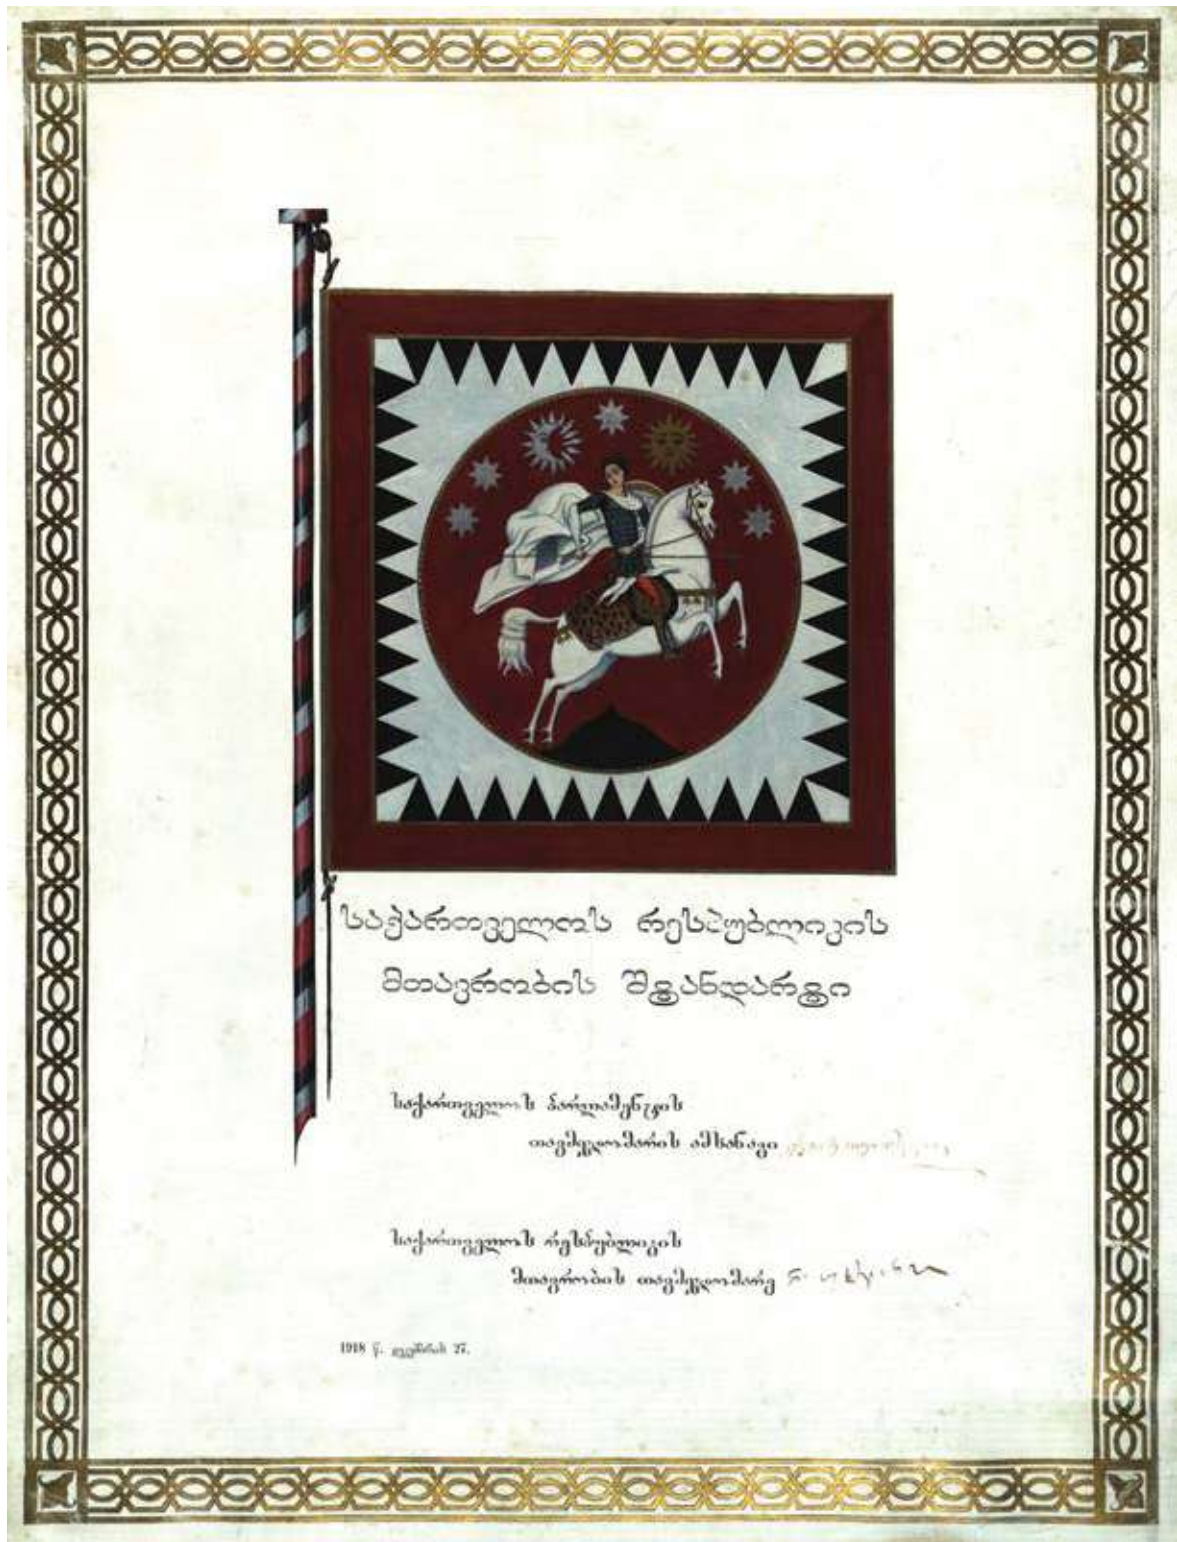 საქართველოს რესპუბლიკის
მთავრობის შტანდარტი
საქართველოს პარლამენტის
თავმჯდომარის ამხანაგი
საქართველოს რესპუბლიკის
მთავრობის თავმჯდომარე ნ.
1918 წ. დეკემბრის 27.